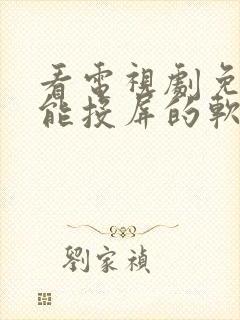 看電視劇免
能投屏的軟
劉家禎